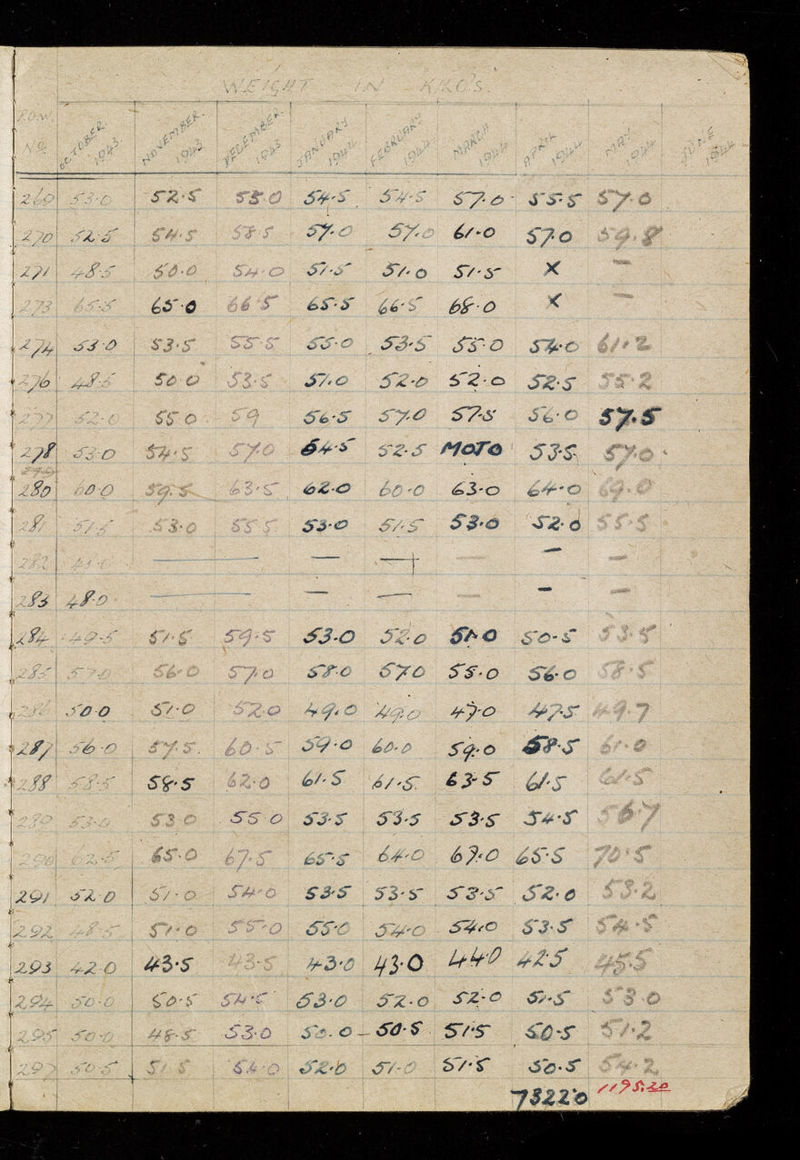 WEIGHT IN KILO'S.
P.O.W. No. OCTOBER. 1943. NOVEMBER. 1943 DECEMBER. 1943 JANUARY 1944 FEBRUARY 1944 MARCH 1944 APRIL 1944 MAY 1944 JUNE 1944
269 53.0 52.5 55.0 54.5 54.5 57.0 55.5 57.0
270 52.5 54.5 58.5 57.0 57.0 61.0 57.0 59.8
271 48.5 50.0 54.0 51.5 51.0 51.5 X –
273 65.5 65.0 66.5 65.5 66.5 68.0 X –
274 53.0 53.5 55.5 55.0 53.5 55.0 54.0 61.2
276 48.5 50.0 53.5 51.0 52.0 52.0 52.5 55.2
277 52.0 55.0 59 56.5 57.0 57.5 56.0 57.5
278 53.0 54.5 57.0 54.5 52.5 MOTO 53.5 57.0
279
280 60.0 59.5 63.5 62.0 60.0 63.0 64.0 69.0
281 51.5 53.0 55.5 53.0 51.5 53.0 52.0 55.5
282 — — — — — –
283 48.0 — — — — – –
284 49.5 51.5 59.5 53.0 52.0 51.0 50.5 53.5
285 57.0 56.0 57.0 58.0 57.0 55.0 56.0 58.5
286 50.0 51.0 52.0 49.0 49.0 47.0 47.5 49.7
287 56.0 57.5 60.5 59.0 60.0 59.0 58.5 61.0
288 58.5 58.5 62.0 61.5 61.5 63.5 61.5 61.5
289 53.0 53.0 55.0 53.5 53.5 53.5 54.5 56.7
290 62.5 65.0 67.5 65.5 64.0 67.0 65.5 70.5
291 52.0 51.0 54.0 53.5 53.5 53.5 52.0 53.2
292 48.5 51.0 55.0 55.0 54.0 54.0 53.5 54.5
293 42.0 43.5 43.5 43.0 43.0 44.0 42.5 45.5
294 50.0 50.5 54.5 53.0 52.0 52.0 51.5 53.0
295 50.0 48.5 53.0 50.0 50.5 51.5 50.5 51.2
297 50.5 51.5 54.0 52.0 51.0 51.5 50.5 54.2
7322.0 1195.20